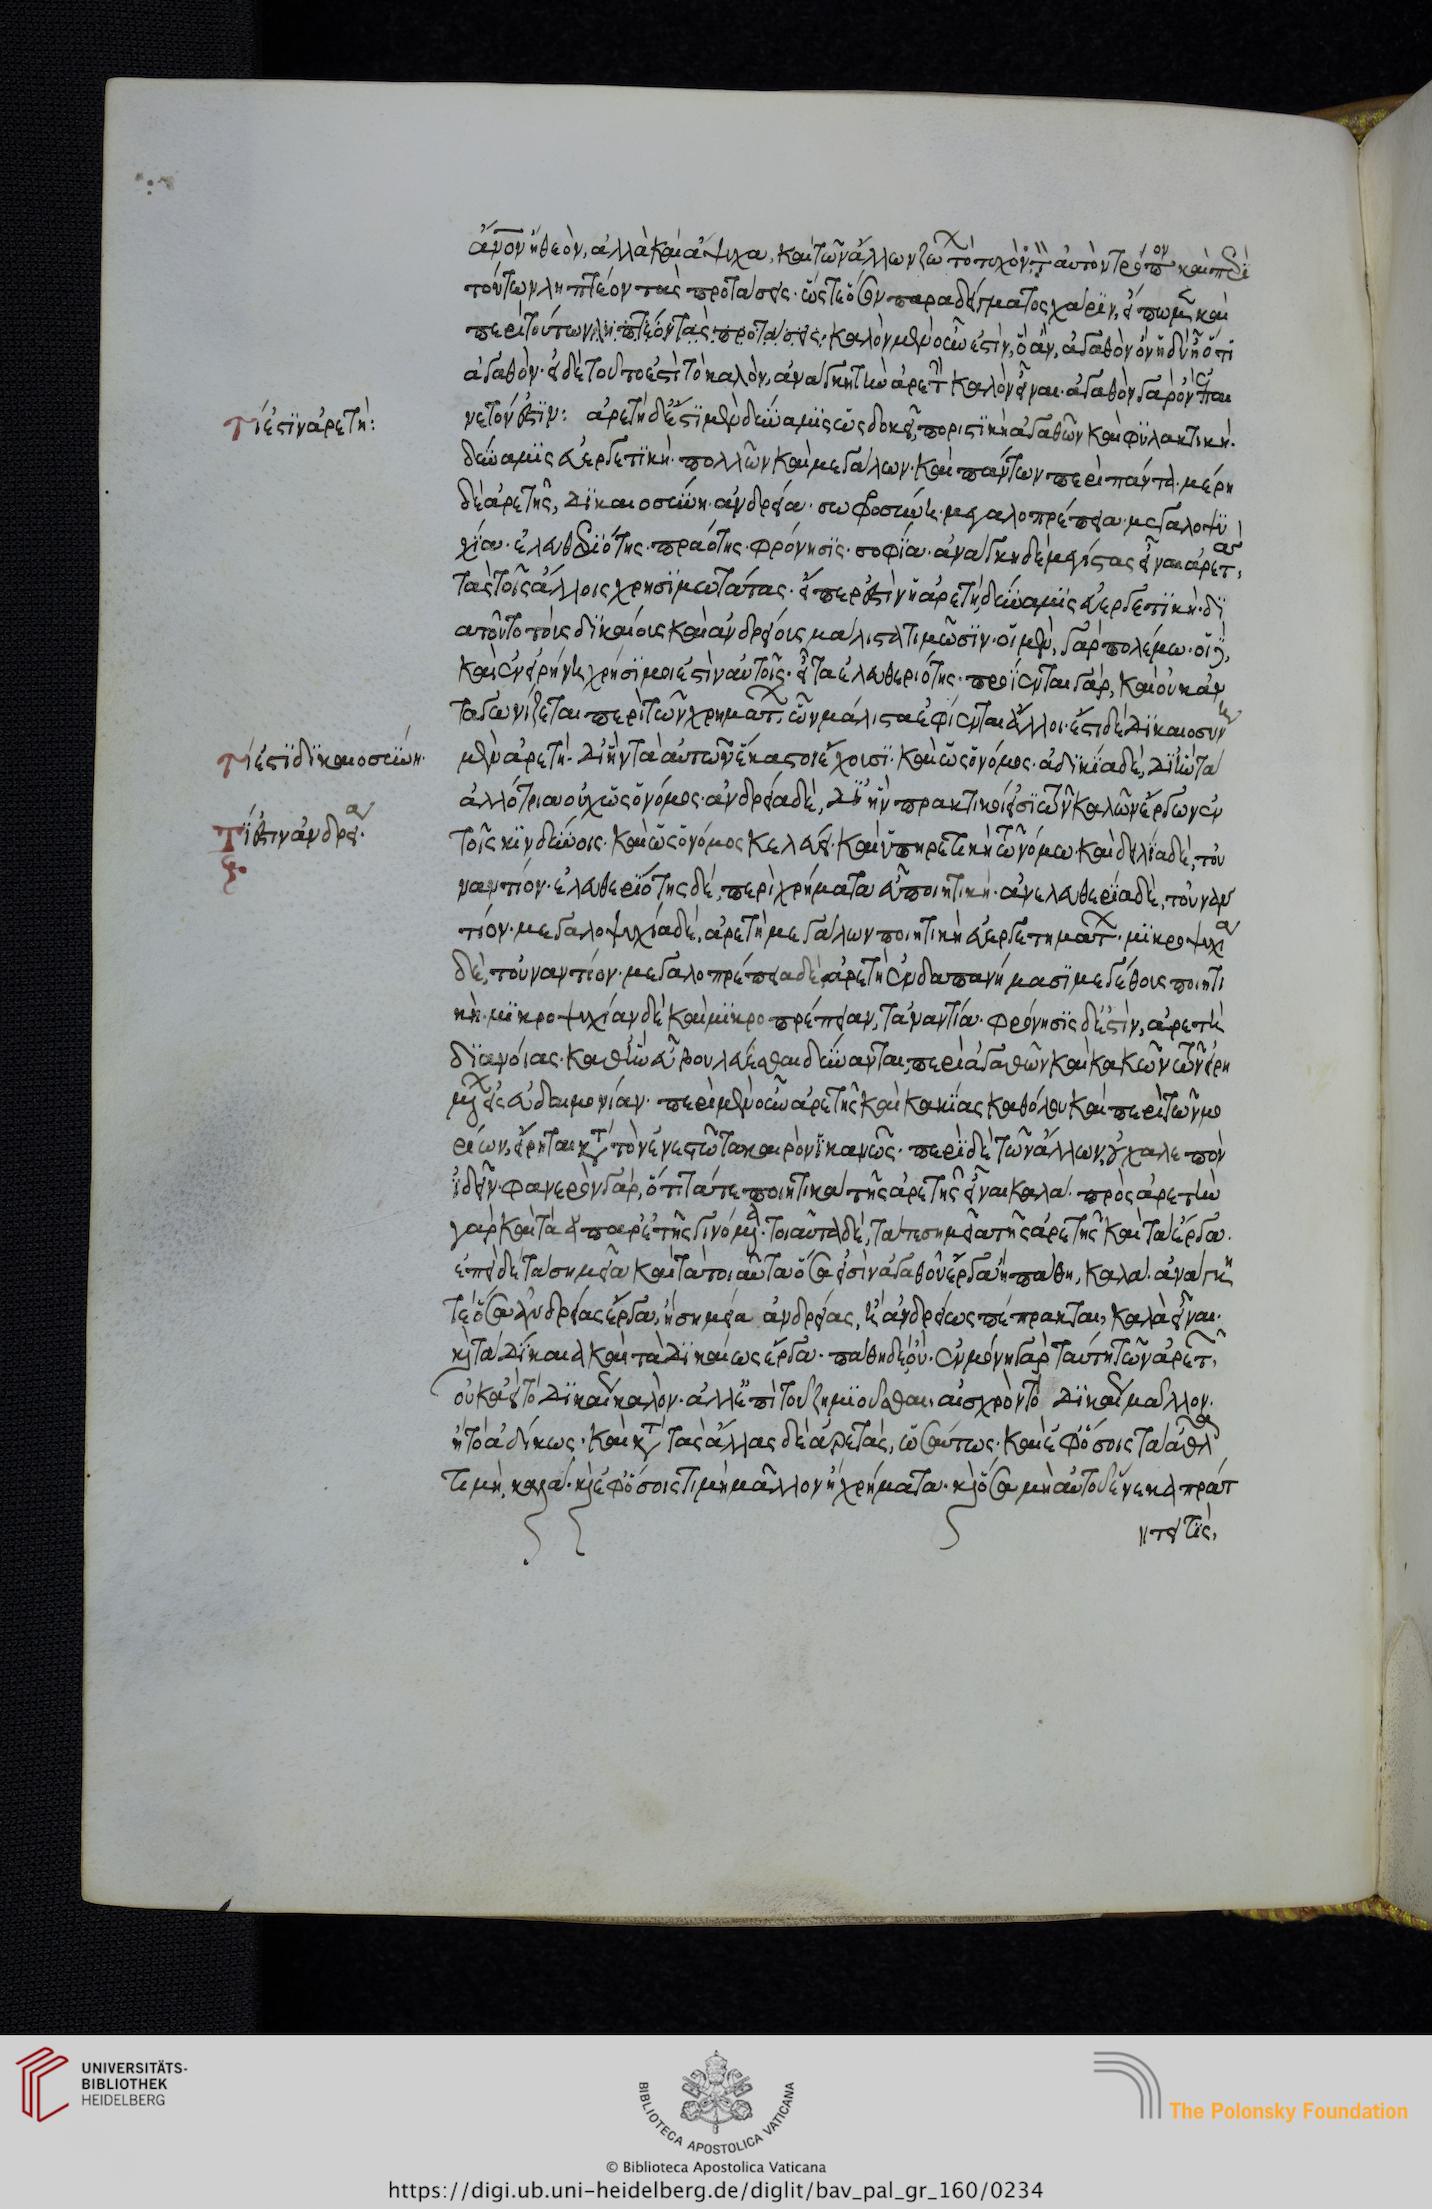 ἄνον ἢ θεὸν, ἀλλὰ καὶ ἄψυχα, καὶ τῶν ἄλλων ζώων τὸ τυχὸν τὸν αὐτὸν τρόπον καὶ περὶ
τούτων ληπτέον τὰς προτάσεις. ὥστε ὅσον παραδείγματος χάριν, εἴπωμεν καὶ
περὶ τούτων ληπτέον τὰς προτάσεις. καλὸν μὲν οὖν ἐστὶν, ὃ ἂν, ἀγαθὸν ὂν ἡδὺ ᾖ ὅτι
ἀγαθὸν. εἰ δὲ τοῦτο ἐστὶ τὸ καλὸν, ἀνάγκη τὴν ἀρετὴν καλὸν εἶναι. ἀγαθὸν γὰρ ὂν ἐπαι
τί ἐστϊν ἀρετὴ:
νετόν ἐστϊν: ἀρετὴ δέ ἐστϊ μὲν δύναμϊς ὡς δοκεῖ, ποριστϊκὴ ἀγαθῶν καὶ φϋλακτικὴ.
δύναμϊς εὐεργετϊκὴ. πολλῶν καὶ μεγάλων. καὶ πάντων περὶ πάντα. μέρη
δὲ ἀρετῆς, δϊκαιοσύνη. ἀνδρεία. σωφροσύνη. μεγαλοπρέπεια. μεγαλοψϋ
χία. ἐλευθεριότης. πραότης. φρόνησϊς. σοφϊα. ἀνάγκη δὲ μεγίστας εἶναι ἀρετὰς
τὰς τοῖς ἄλλοις χρησϊμωτάτας. εἴπερ ἐστὶν ἡ ἀρετὴ, δύναμϊς εὐεργετϊκὴ. δϊ
α τοῦτο τοὺς δϊκαίοις καὶ ἀνδρείοις μάλιστα τιμῶσϊν. οἱ μὲν, γὰρ πολέμω. οἱ δὲ,
καὶ ἐν εἰρήνη χρήσϊμοι ἐστὶν αὐτοῖς. εἶτα ἐλευθεριότης. προϊενται γὰρ, καὶ οὐκ ἀν
ταγωνίζεται περὶ τῶν χρημάτων. ὧν μάλιστα ἐφίενται ἄλλοι. ἔστι δὲ δϊκαιοσύνη
τί ἐστϊ δϊκαιοσύνη.
μὲν ἀρετὴ. δι' ἣν τὰ αὑτῶν ἕκαστοι ἔχουσϊ. καὶ ὡς ὁ νόμος. ἀδϊκία δὲ, δϊ' ἣν τὰ
ἀλλότρια οὐχ ὡς ὁ νόμος. ἀνδρεία δὲ, δϊ' ἣν πρακτικοί εἰσϊ τῶν καλῶν ἔργων ἐν
τϊ ἐστιν ἀνδρεία.
τοῖς κϊνδύνοις. καὶ ὡς ὁ νόμος κελεύει. καὶ ὑπηρετικὴ τῶ νόμω. καὶ δειλϊα δὲ, τοὐ
ναντίον. ἐλευθερϊότης δὲ, περὶ χρήματα εὖ ποιητικὴ. ἀνελευθερϊα δὲ, τοὐναν
τίον. μεγαλοψυχία δὲ, ἀρετὴ μεγάλων ποιητικὴ εὐεργετημάτων. μϊκροψυχία
δὲ, τοὐναντίον. μεγαλοπρέπεια δὲ ἀρετὴ ἐν δαπανήμασϊ μεγέθους ποιητι
κὴ. μϊκροψυχίαν δὲ καὶ μϊκροπρέπειαν, τἀναντία. φρόνησϊς δέ ἐστὶν, ἀρετὴ
δϊανοίας. καθ' ἣν εὖ βουλεύεσθαι δύνανται, περὶ ἀγαθῶν καὶ κακῶν τῶν εἰρη
μένων εἰς εὐδαιμονίαν. περὶ μὲν οὖν ἀρετῆς καὶ κακϊας καθόλου καὶ περὶ τῶν μο
ρίων, εἴρηται κατὰ τὸν ἐνεστῶτα καιρὸν ϊκανῶς. περϊ δὲ τῶν ἄλλων, οὐ χαλεπὸν
ἰδεῖν. φανερὸν γὰρ, ὅτι τά τε ποιητικὰ τῆς ἀρετῆς εἶναι καλὰ. πρὸς ἀρετὴν
γάρ. καὶ τὰ ἀπ' ἀρετῆς γινόμενα. τοιαῦτα δὲ, τά τε σημεῖα τῆς ἀρετῆς καὶ τὰ ἔργα.
ἐπεὶ δὲ τὰ σημεῖα καὶ τὰ τοιαῦτα ὅσα εἰσὶν ἀγαθοῦ ἔργα ἢ πάθη, καλὰ. ἀνάγκη
τε ὅσα ἀνδρείας ἔργα, ἢ σημεῖα ἀνδρείας, ἢ ἀνδρείως πέπρακται, καλὰ εἶναι.
καὶ τὰ δϊκαια καὶ τὰ δϊκαίως ἔργα. πάθη δὲ οὐ. ἐν μόνη γὰρ ταύτη τῶν ἀρετῶν,
οὐκ ἀεὶ τὸ δϊκαίως καλὸν. ἀλλ' ἐπὶ τοῦ ζημϊοῦσθαι, αἰσχρὸν τὸ δϊκαίως μᾶλλον.
ἢ τὸ ἀδίκως. καὶ κατὰ τὰς ἄλλας δὲ ἀρετὰς, ὡσαύτως. καὶ ἐφ' ὅσοις τὰ ἆθλα
τιμὴ, καλά. καὶ ἐφ' ὅσοις τιμὴ μᾶλλον ἢ χρήματα. καὶ ὅσα μὴ αὐτοῦ ἕνεκα πράτ
τει τῒς,
UNIVERSITÄTS-
BIBLIOTHEK
HEIDELBERG
BIBLIOTECA APOSTOLICA VATICANA
The Polonsky Foundation
© Biblioteca Apostolica Vaticana
https://digi.ub.uni-heidelberg.de/diglit/bav_pal_gr_160/0234